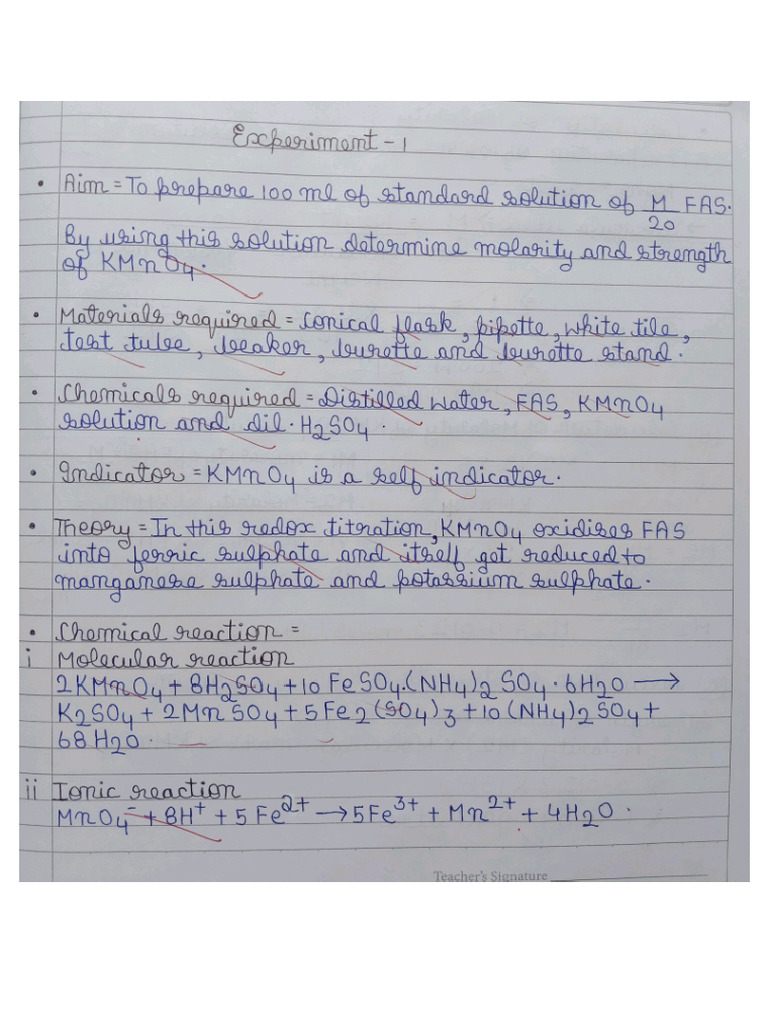 Experiment - 1
• Aim = To prepare 100 ml of standard solution of M/20 FAS.
By using this solution determine molarity and strength
of KMnO4.
• Materials required = Conical flask, pipette, white tile,
test tube, beaker, burette and burette stand.
• Chemicals required = Distilled water, FAS, KMnO4
solution and dil. H2SO4.
• Indicator = KMnO4 is a self indicator.
• Theory = In this redox titration, KMnO4 oxidises FAS
into ferric sulphate and itself get reduced to
manganese sulphate and potassium sulphate.
• Chemical reaction =
i Molecular reaction
2KMnO4 + 8H2SO4 + 10 FeSO4.(NH4)2 SO4.6H2O →
K2SO4 + 2MnSO4 + 5Fe2(SO4)3 + 10(NH4)2SO4 +
68H2O.
ii Ionic reaction
MnO4⁻ + 8H⁺ + 5Fe²⁺ → 5Fe³⁺ + Mn²⁺ + 4H2O.
Teacher's Signature